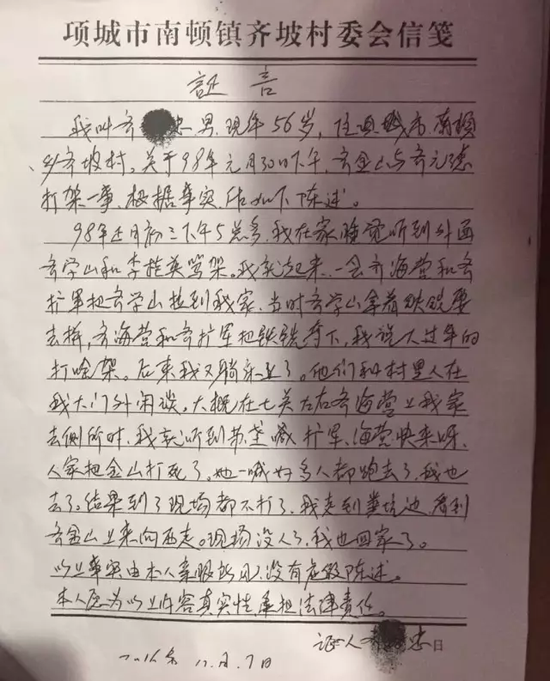 项城市南顿镇齐坡村委会信笺
証言
我叫齐 忠 男,现年56岁,住项城市南顿
乡齐坡村。关于98年元月30日下午,齐金山与齐元德
打架一事,根据事实,作如下陈述。
98年正月初三下午5点多,我在家睡觉听到外面
齐学山和李桂英骂架。我就起来,一会齐海营和齐
扩军把齐学山拉到我家,当时齐学山拿着铁锨要
去拼,齐海营和齐扩军把铁锨夺下,我说大过年的
打啥架。后来我又躺床上了。他们和村里人在
我大门外闲谈。大概在七点左右齐海营上我家
去侧所时,我就听到苏 喊扩军、海营快来呀,
人家把金山打死了。她一喊好多人都跑去了,我也
去了。结果到了现场都不打了,我走到 坑边,看到
齐金山上来向西走。现场没人了,我也回家了。
以上事实由本人亲眼所见,没有虚假陈述。
本人愿为以上内容真实性承担法律责任。
证人 齐 忠 日
2016年 12月7日